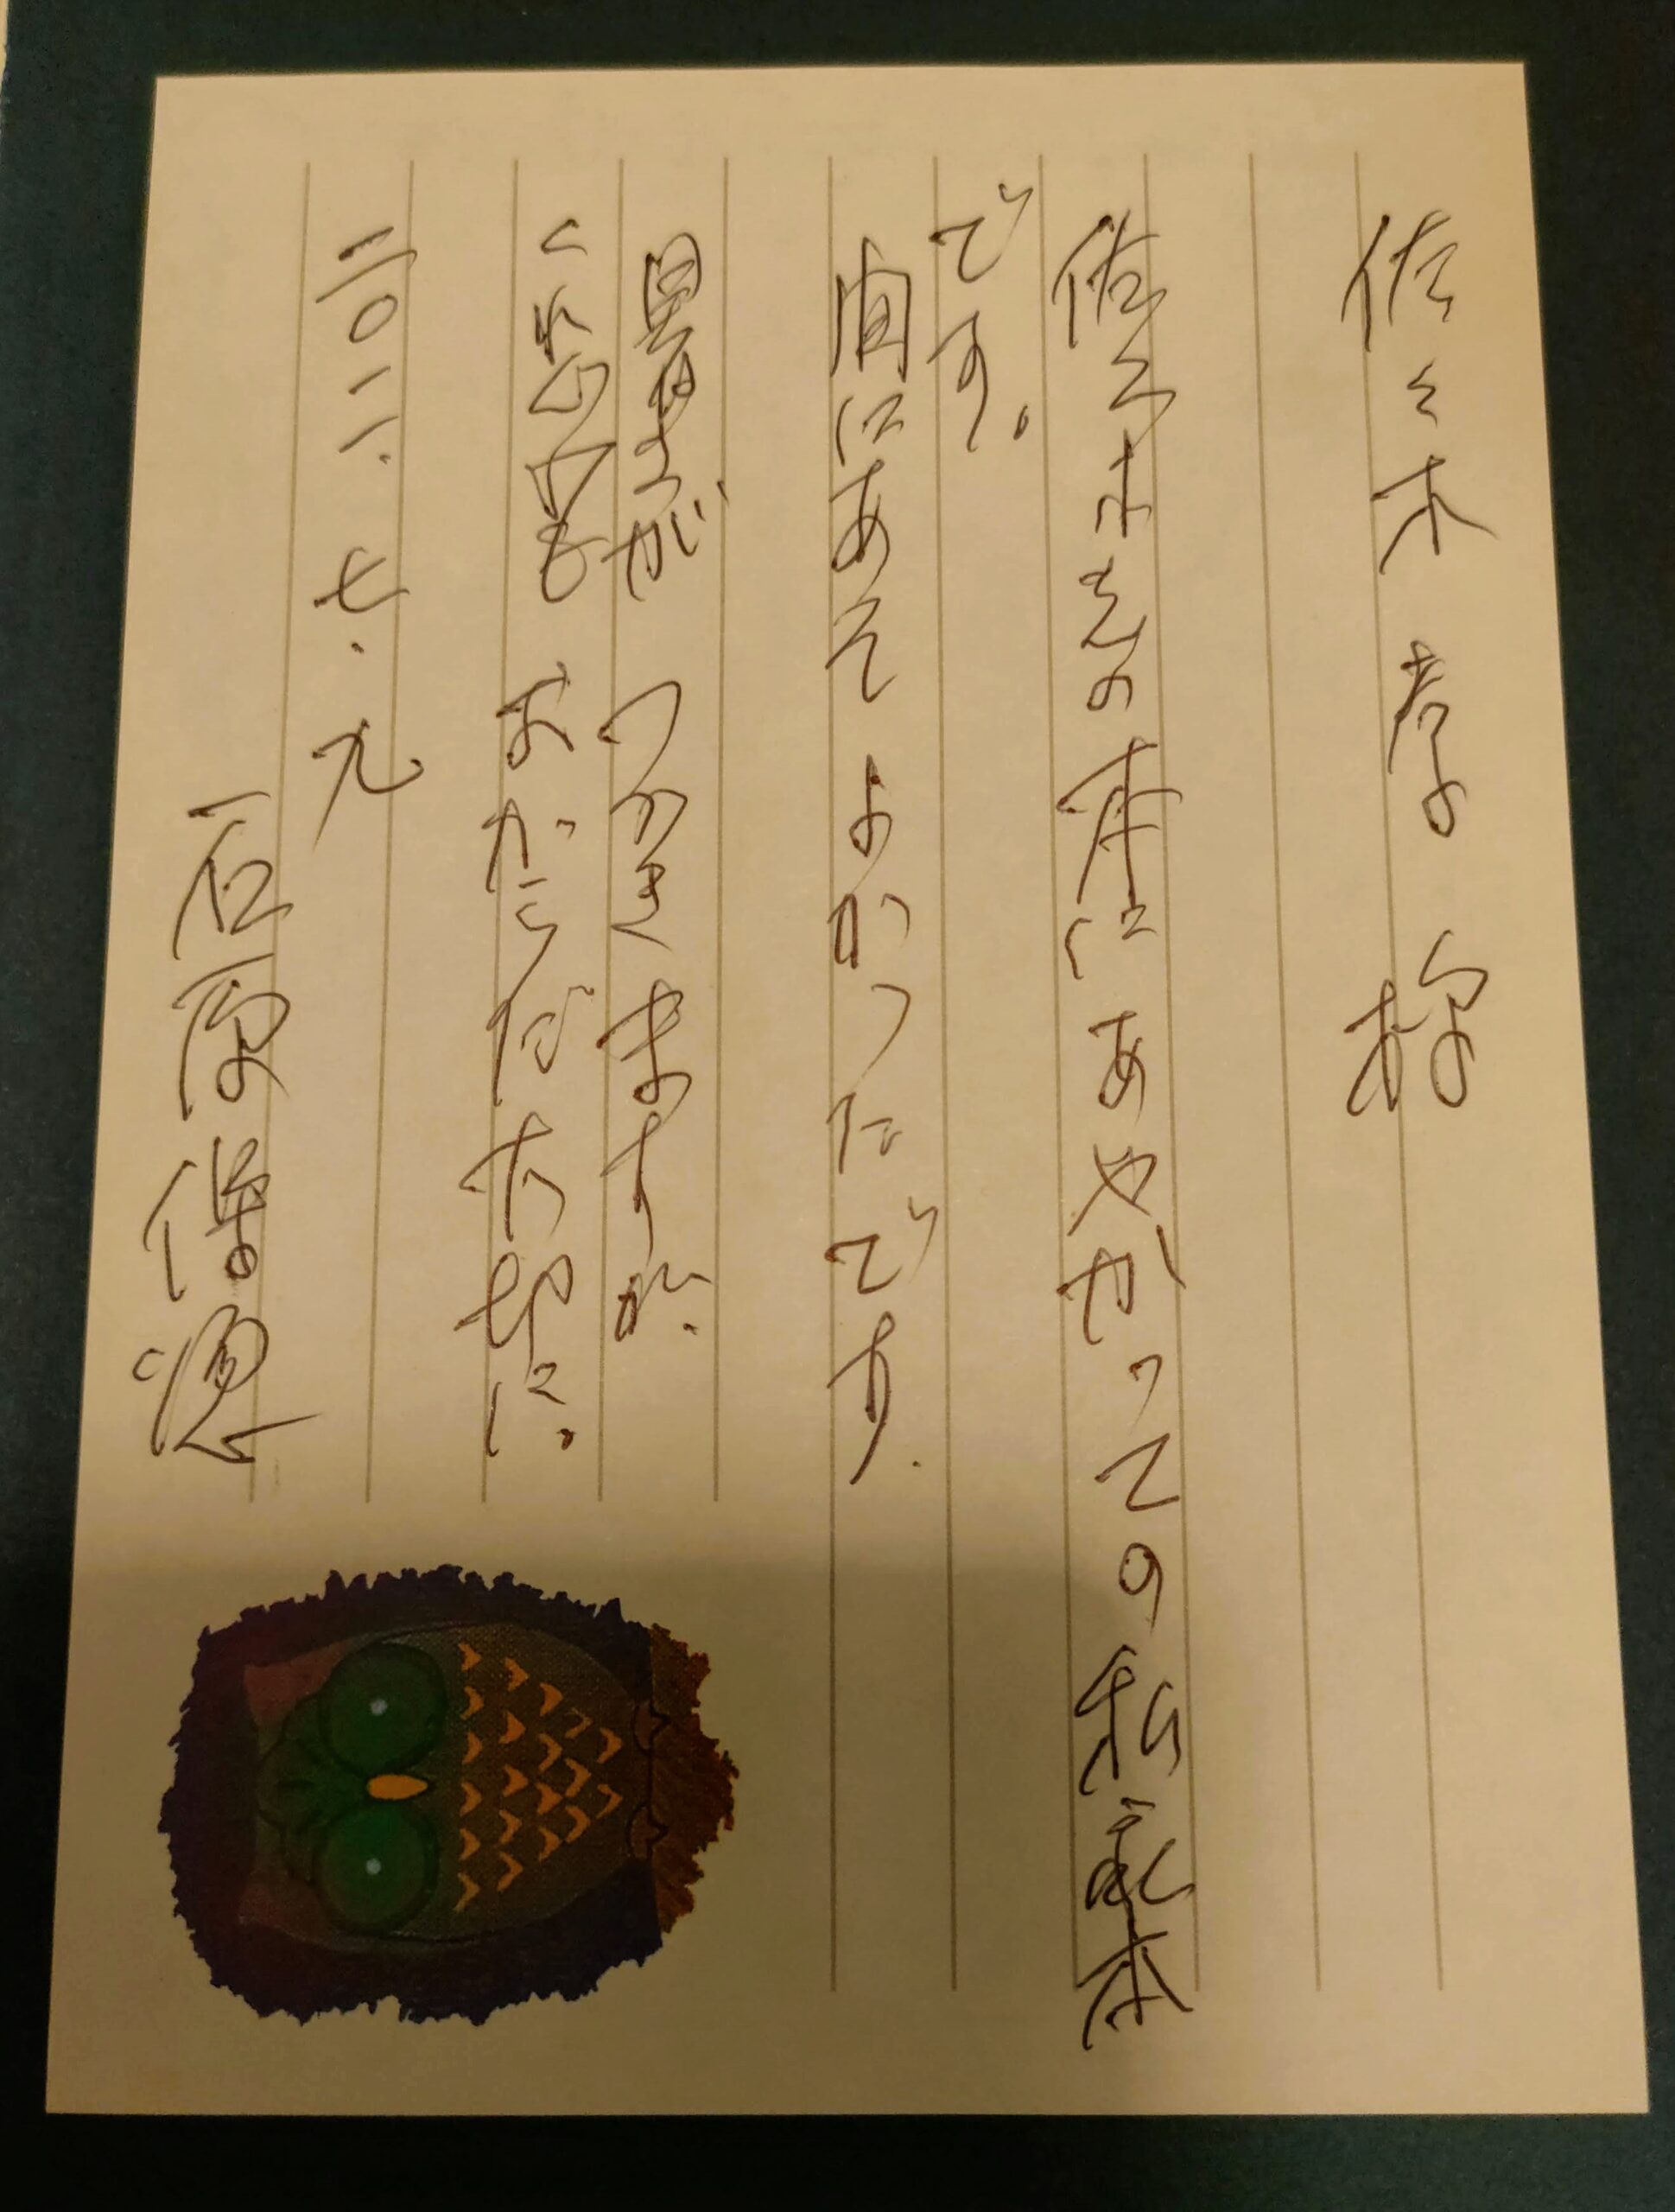 佐々木 孝 様
佐々木さんの本にあやかっての私家本
です。
間にあって よかったです.
暑さが つづきますが.
くれぐれも おからだ大切に。
二〇一一.七.九
石原保